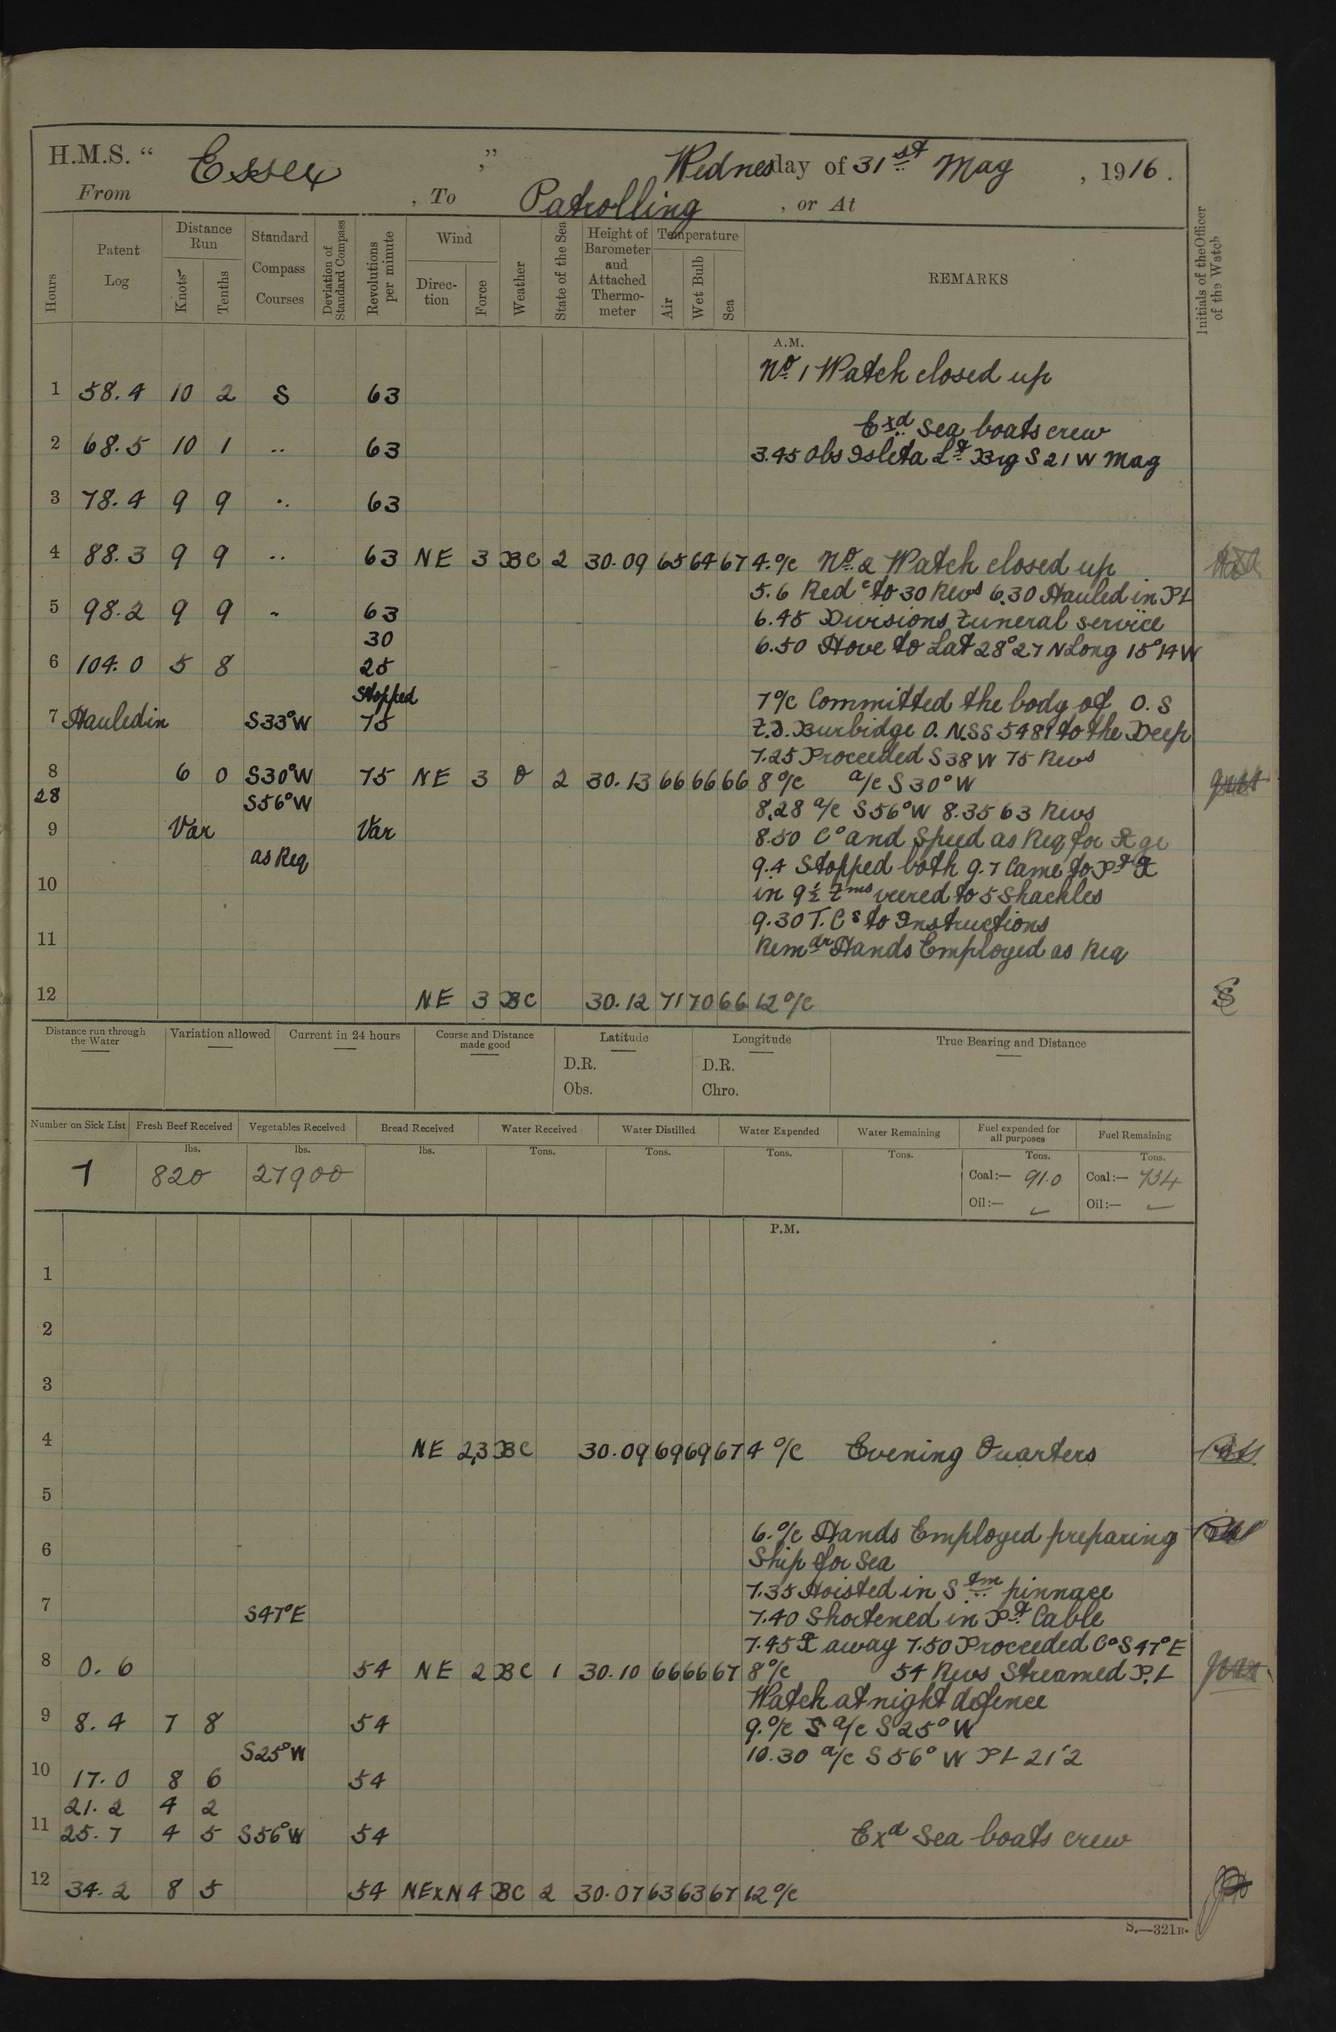 H.M.S. " Essex " Wednesday of 31st May, 1916.
From , To Patrolling , or At
Hours
Patent Log
Distance Run
Knots
Tenths
Standard Compass Courses
Deviation of Standard Compass
Revolutions per minute
Wind
Direction
Force
Weather
State of the Sea
Height of Barometer and Attached Thermometer
Temperature
Air
Wet Bulb
Sea
REMARKS
Initials of the Officer of the Watch
A.M.
No 1 Watch closed up
1 58.4 10 2 S 63
Exd Sea boats crew
2 68.5 10 1 .. 63
3.45 Obs Isleta Lt Brg S 21 W Mag
3 78.4 9 9 .. 63
4 88.3 9 9 .. 63 NE 3 BC 2 30.09 65 64 67 4.o/c No 2 Watch closed up
5.6 Redc to 30 Revs 6.30 Hauled in PL
5 98.2 9 9 .. 63 6.45 Divisions Funeral service
30 6.50 Hove to Lat 28°27 N Long 15°14 W
6 104.0 5 8 25
Stopped 7 o/c Committed the body of O.S
7 Hauled in S33°W 75 F.D. Burbidge O.N. SS 5481 to the Deep
7.25 Proceeded S38W 75 Revs
8 6 0 S30°W 75 NE 3 O 2 30.13 66 66 66 8 o/c a/c S30°W
28 S56°W 8.28 a/c S56°W 8.35 63 Revs
9 Var Var 8.50 Co and Speed as Req for
as Req 9.4 Stopped both 9.7 Came to Pt
10 in 9½ fms veered to 5 Shackles
9.30 T.Cs to Instructions
11 Remdr Hands Employed as Req
12 NE 3 BC 30.12 71 70 66 12 o/c
Distance run through the Water
Variation allowed
Current in 24 hours
Course and Distance made good
Latitude
D.R.
Obs.
Longitude
D.R.
Chro.
True Bearing and Distance
Number on Sick List
Fresh Beef Received
Vegetables Received
Bread Received
Water Received
Water Distilled
Water Expended
Water Remaining
Fuel expended for all purposes
Fuel Remaining
lbs. lbs. lbs. Tons. Tons. Tons. Tons. Tons. Tons.
7 820 27900 Coal:— 91.0 Coal:— 734
Oil:— Oil:—
P.M.
1
2
3
4 NE 2,3 BC 30.09 69 69 67 4 o/c Evening Quarters
5
6.o/c Hands Employed preparing
6 Ship for Sea
7.35 Hoisted in Stm pinnace
7 S47°E 7.40 Shortened in Pt Cable
7.45 away 7.50 Proceeded Co S47°E
8 0.6 54 NE 2 BC 1 30.10 66 66 67 8 o/c 54 Revs Streamed P.L
Watch at night defence
9 8.4 7 8 54 9.o/c S a/c S25°W
S25°W 10.30 a/c S56°W PL 21'2
10 17.0 8 6 54
21.2 4 2
11 25.7 4 5 S56°W 54 Exd Sea boats crew
12 34.2 8 5 54 NExN 4 BC 2 30.07 63 63 67 12 o/c
S.—321B.